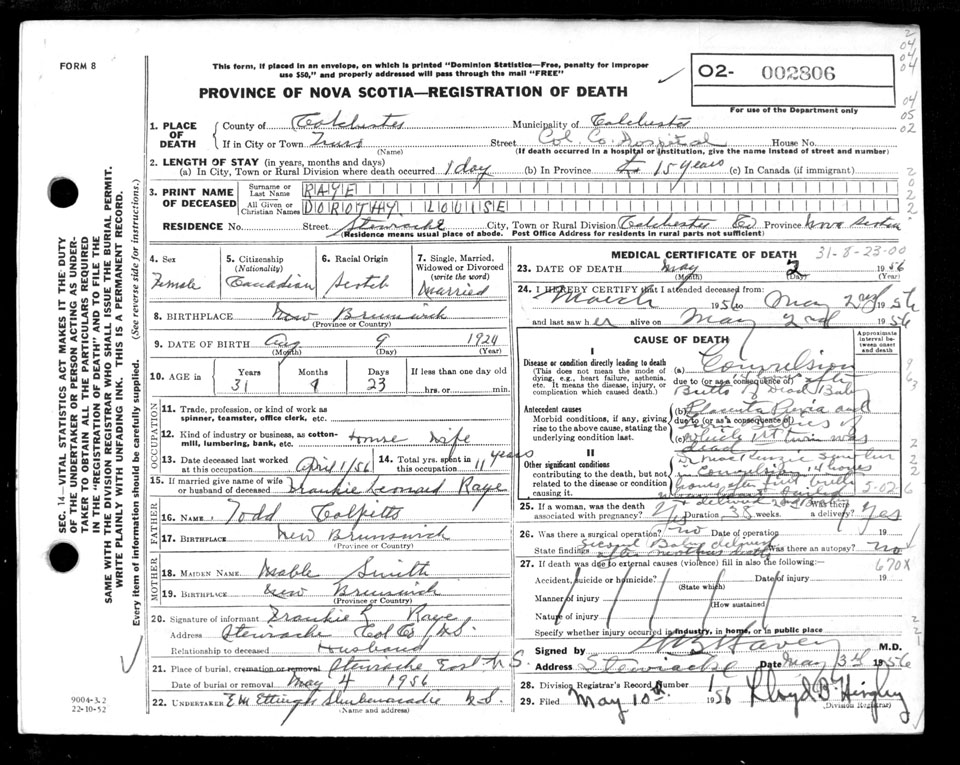 FORM 8
This form, if placed in an envelope, on which is printed "Dominion Statistics—Free, penalty for improper
use $50," and properly addressed will pass through the mail "FREE"
02- 002806
For use of the Department only
PROVINCE OF NOVA SCOTIA—REGISTRATION OF DEATH
1. PLACE OF DEATH { County of Colchester Municipality of Colchester
If in City or Town Truro Street Col. Co. Hospital House No.
(Name) (If death occurred in a hospital or institution, give the name instead of street and number)
2. LENGTH OF STAY (in years, months and days)
(a) In City, Town or Rural Division where death occurred 1 day (b) In Province 15 years (c) In Canada (if immigrant)
3. PRINT NAME OF DECEASED { Surname or Last Name RAYE
All Given or Christian Names DOROTHY LOUISE
RESIDENCE No. Street Stewiacke City, Town or Rural Division Colchester Co Province Nova Scotia
(Residence means usual place of abode. Post Office Address for residents in rural parts not sufficient)
4. Sex
Female
5. Citizenship
(Nationality)
Canadian
6. Racial Origin
Scotch
7. Single, Married,
Widowed or Divorced
(write the word)
Married
8. BIRTHPLACE New Brunswick
(Province or Country)
9. DATE OF BIRTH Aug 9 1924
(Month) (Day) (Year)
10. AGE IN Years Months Days If less than one day old
31 23 hrs. or min.
OCCUPATION
11. Trade, profession, or kind of work as
spinner, teamster, office clerk, etc.
12. Kind of industry or business, as cotton-
mill, lumbering, bank, etc. House Wife
13. Date deceased last worked
at this occupation April 1/56
14. Total yrs. spent in
this occupation 11 years
15. If married give name of wife
or husband of deceased Frankie Leonard Raye
FATHER
16. NAME Todd Colpitts
17. BIRTHPLACE New Brunswick
(Province or Country)
MOTHER
18. MAIDEN NAME Mable Smith
19. BIRTHPLACE New Brunswick
(Province or Country)
20. Signature of informant Frankie L Raye
Address Stewiacke Col Co N.S.
Relationship to deceased Husband
21. Place of burial, cremation or removal Stewiacke East N.S.
Date of burial or removal May 4 1956
22. UNDERTAKER E M Ettinger Shubenacadie N.S.
(Name and address)
MEDICAL CERTIFICATE OF DEATH 31-8-23-00
23. DATE OF DEATH May 2 1956
(Month) (Day) (Year)
24. I HEREBY CERTIFY that I attended deceased from
March 1956 to May 2nd 1956
and last saw her alive on May 2nd 1956
CAUSE OF DEATH
Approximate
interval be-
tween onset
and death
I
Disease or condition directly leading to death
(This does not mean the mode of
dying, e.g., heart failure, asthenia,
etc. It means the disease, injury, or
complication which caused death.)
(a) Convulsion
due to (or as a consequence of)
Birth of Dead Baby
Antecedent causes
Morbid conditions, if any, giving
rise to the above cause, stating the
underlying condition last.
(b) Placenta Previa and
due to (or as a consequence of)
(c) 1st twin was
dead
II
Other significant conditions
contributing to the death, but not
related to the disease or condition
causing it.
in Convulsion 14 hours
hours after first birth
5-02-6
25. If a woman, was the death
associated with pregnancy? Yes Duration 38 weeks. Was there a delivery? Yes
26. Was there a surgical operation? no Date of operation 19
State findings Second Baby delivered
after mothers death Was there an autopsy? no
670X
27. If death was due to external causes (violence) fill in also the following:—
Accident, suicide or homicide? Date of injury 19
(State which)
Manner of injury
(How sustained)
Nature of injury
Specify whether injury occurred in industry, in home, or in public place
Signed by
Address Stewiacke Date May 3rd 1956
28. Division Registrar's Record Number 1
29. Filed May 10th 1956 Lloyd B. Hingley
(Division Registrar)
SEC. 14—VITAL STATISTICS ACT MAKES IT THE DUTY
OF THE UNDERTAKER OR PERSON ACTING AS UNDER-
TAKER TO OBTAIN ALL THE PARTICULARS REQUIRED
IN THE "REGISTRATION OF DEATH" AND TO FILE THE
SAME WITH THE DIVISION REGISTRAR WHO SHALL ISSUE THE BURIAL PERMIT.
WRITE PLAINLY WITH UNFADING INK. THIS IS A PERMANENT RECORD.
Every item of information should be carefully supplied. (See reverse side for instructions.)
9004-3.2
22-10-52